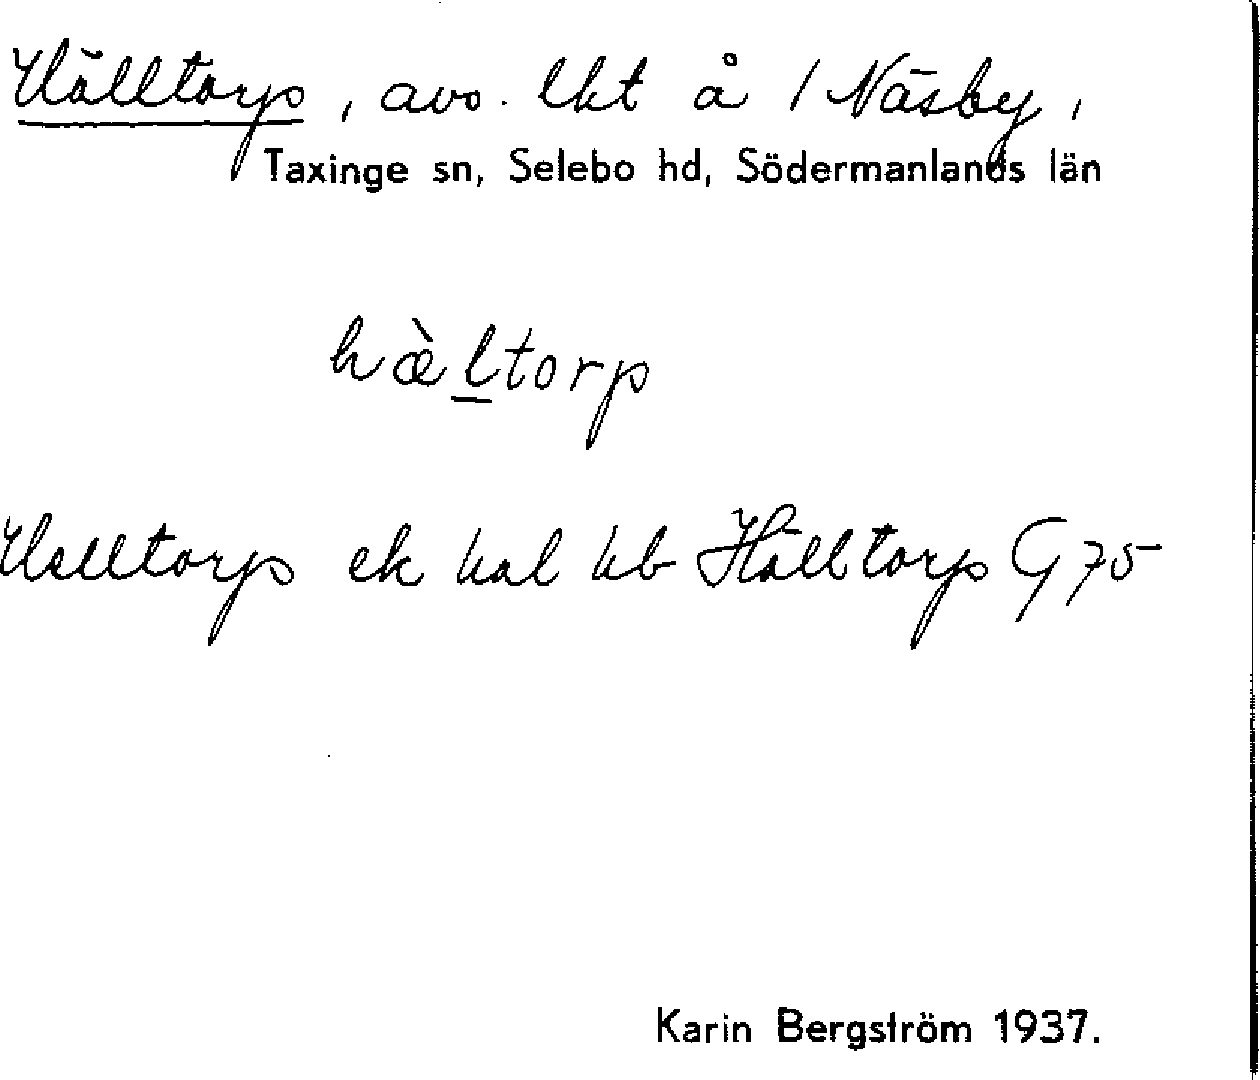 Hälltorp, avs. lht å 1 Näsby,
Taxinge sn, Selebo hd, Södermanlands län
hæ̀l̲torp
Helltorp ek kal kb Hälltorp G 75
Karin Bergström 1937.